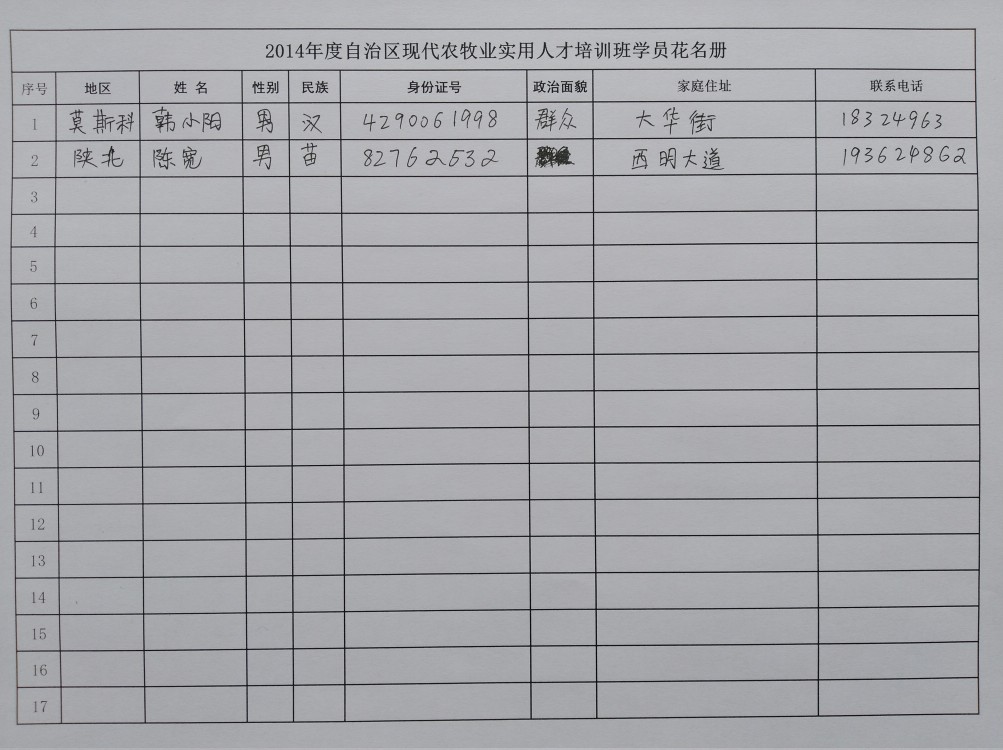 2014年度自治区现代农牧业实用人才培训班学员花名册
序号 地区 姓名 性别 民族 身份证号 政治面貌 家庭住址 联系电话
1 莫斯科 韩小阳 男 汉 4290061998 群众 大华街 18324963
2 陕北 陈宽 男 苗 82762532 西明大道 193624862
3
4
5
6
7
8
9
10
11
12
13
14
15
16
17